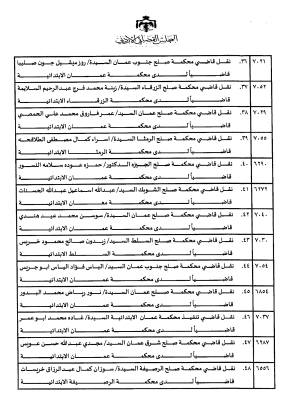 المجلس القضائي الأردني
٧٠٢١ ٣٦. نقل قاضي محكمة صلح جنوب عمان السيدة/ روزميشيل جون صليبا
قاضياً لدى محكمة عمان الابتدائية
٧٠٥٢ ٣٧. نقل قاضي محكمة صلح الزرقاء السيدة/ زينة محمد فرج عبدالرحيم السلايمة
قاضياً لدى محكمة الزرقاء الابتدائية
٧٠٢٩ ٣٨. نقل قاضي محكمة صلح عمان السيد/ عمر فاروق محمد علي الحمصي
قاضياً لدى محكمة عمان الابتدائية
٧٠٥٥ ٣٩. نقل قاضي محكمة صلح الرمثا السيدة/ اسراء كمال مصطفى الطلافحه
قاضياً لدى محكمة الرمثا الابتدائية
٦٦٢٠ ٤٠. نقل قاضي محكمة صلح الجيزه الدكتور/ حمزه عوده سلامه النسور
قاضياً لدى محكمة عمان الابتدائية
٦٢٧٢ ٤١. نقل قاضي محكمة صلح الشوبك السيد/ عبدالله اسماعيل عبدالله الحسنات
قاضياً لدى محكمة معان الابتدائية
٧٠٤٠ ٤٢. نقل قاضي محكمة صلح عمان السيدة/ سوسن محمد عبد هندي
قاضياً لدى محكمة عمان الابتدائية
٧٠٣٠ ٤٣. نقل قاضي محكمة صلح السلط السيد/ زيدون صالح محمود خريس
قاضياً لدى محكمة السلط الابتدائية
٧٠٥٤ ٤٤. نقل قاضي محكمة صلح جنوب عمان السيد/ الياس فؤاد الياس ابوجريس
قاضياً لدى محكمة عمان الابتدائية
٦٨٥٤ ٤٥. نقل قاضي محكمة صلح عمان السيدة/ نور رياض محمد البدور
قاضياً لدى محكمة عمان الابتدائية
٧٠٣٧ ٤٦. نقل قاضي تنفيذ محكمة عمان الابتدائية السيدة/ غاده محمد ابو عمر
قاضياً لدى محكمة عمان الابتدائية
٦٦٨٧ ٤٧. نقل قاضي محكمة صلح شرق عمان السيد/ مجدي عبدالله حسن عويس
قاضياً لدى محكمة عمان الابتدائية
٦٥٥٦ ٤٨. نقل قاضي محكمة صلح الرصيفة السيدة/ سوزان كمال عبدالرزاق خريسات
قاضياً لدى محكمة الرصيفة الابتدائية